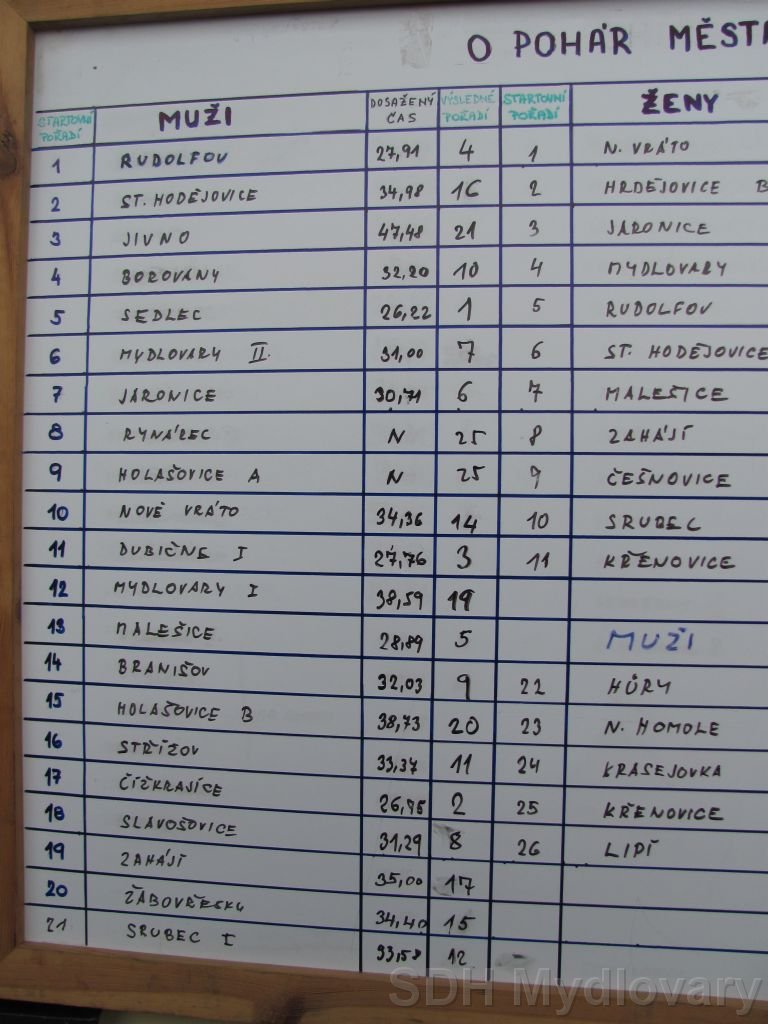 O POHÁR MĚSTA
STARTOVNÍ POŘADÍ MUŽI DOSAŽENÝ ČAS VÝSLEDNÉ POŘADÍ STARTOVNÍ POŘADÍ ŽENY
1 RUDOLFOV 27,91 4 1 N. VRÁTO
2 ST. HODĚJOVICE 34,98 16 2 HRDĚJOVICE B
3 JIVNO 47,48 21 3 JARONICE
4 BOROVANY 32,20 10 4 MYDLOVARY
5 SEDLEC 26,22 1 5 RUDOLFOV
6 MYDLOVARY II. 31,00 7 6 ST. HODĚJOVICE
7 JARONICE 30,71 6 7 MALEŠICE
8 RYNÁREC N 25 8 ZAHÁJÍ
9 HOLAŠOVICE A N 25 9 ČEŠNOVICE
10 NOVÉ VRÁTO 34,36 14 10 SRUBEC
11 DUBIČNÉ I 27,76 3 11 KŘENOVICE
12 MYDLOVARY I 38,59 19
13 MALEŠICE 28,89 5 MUŽI
14 BRANIŠOV 32,03 9 22 HŮRY
15 HOLAŠOVICE B 38,73 20 23 N. HOMOLE
16 STŘÍŽOV 33,37 11 24 KRASEJOVKA
17 ČÍŽKRAJICE 26,75 2 25 KŘENOVICE
18 SLAVOŠOVICE 31,29 8 26 LIPÍ
19 ZAHÁJÍ 35,00 17
20 ŽABOVŘESKY 34,40 15
21 SRUBEC I 33,58 12
SDH Mydlovary